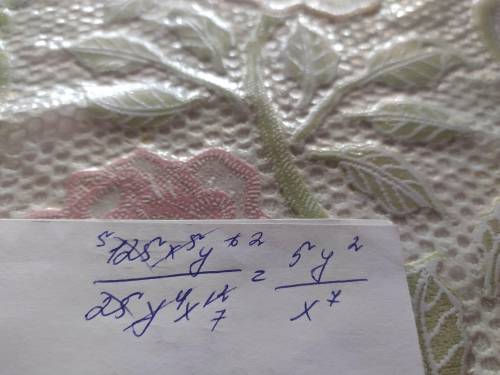 5 125x⁵y⁶ 2 / 25y⁴x¹² 7 = 5y² / x⁷